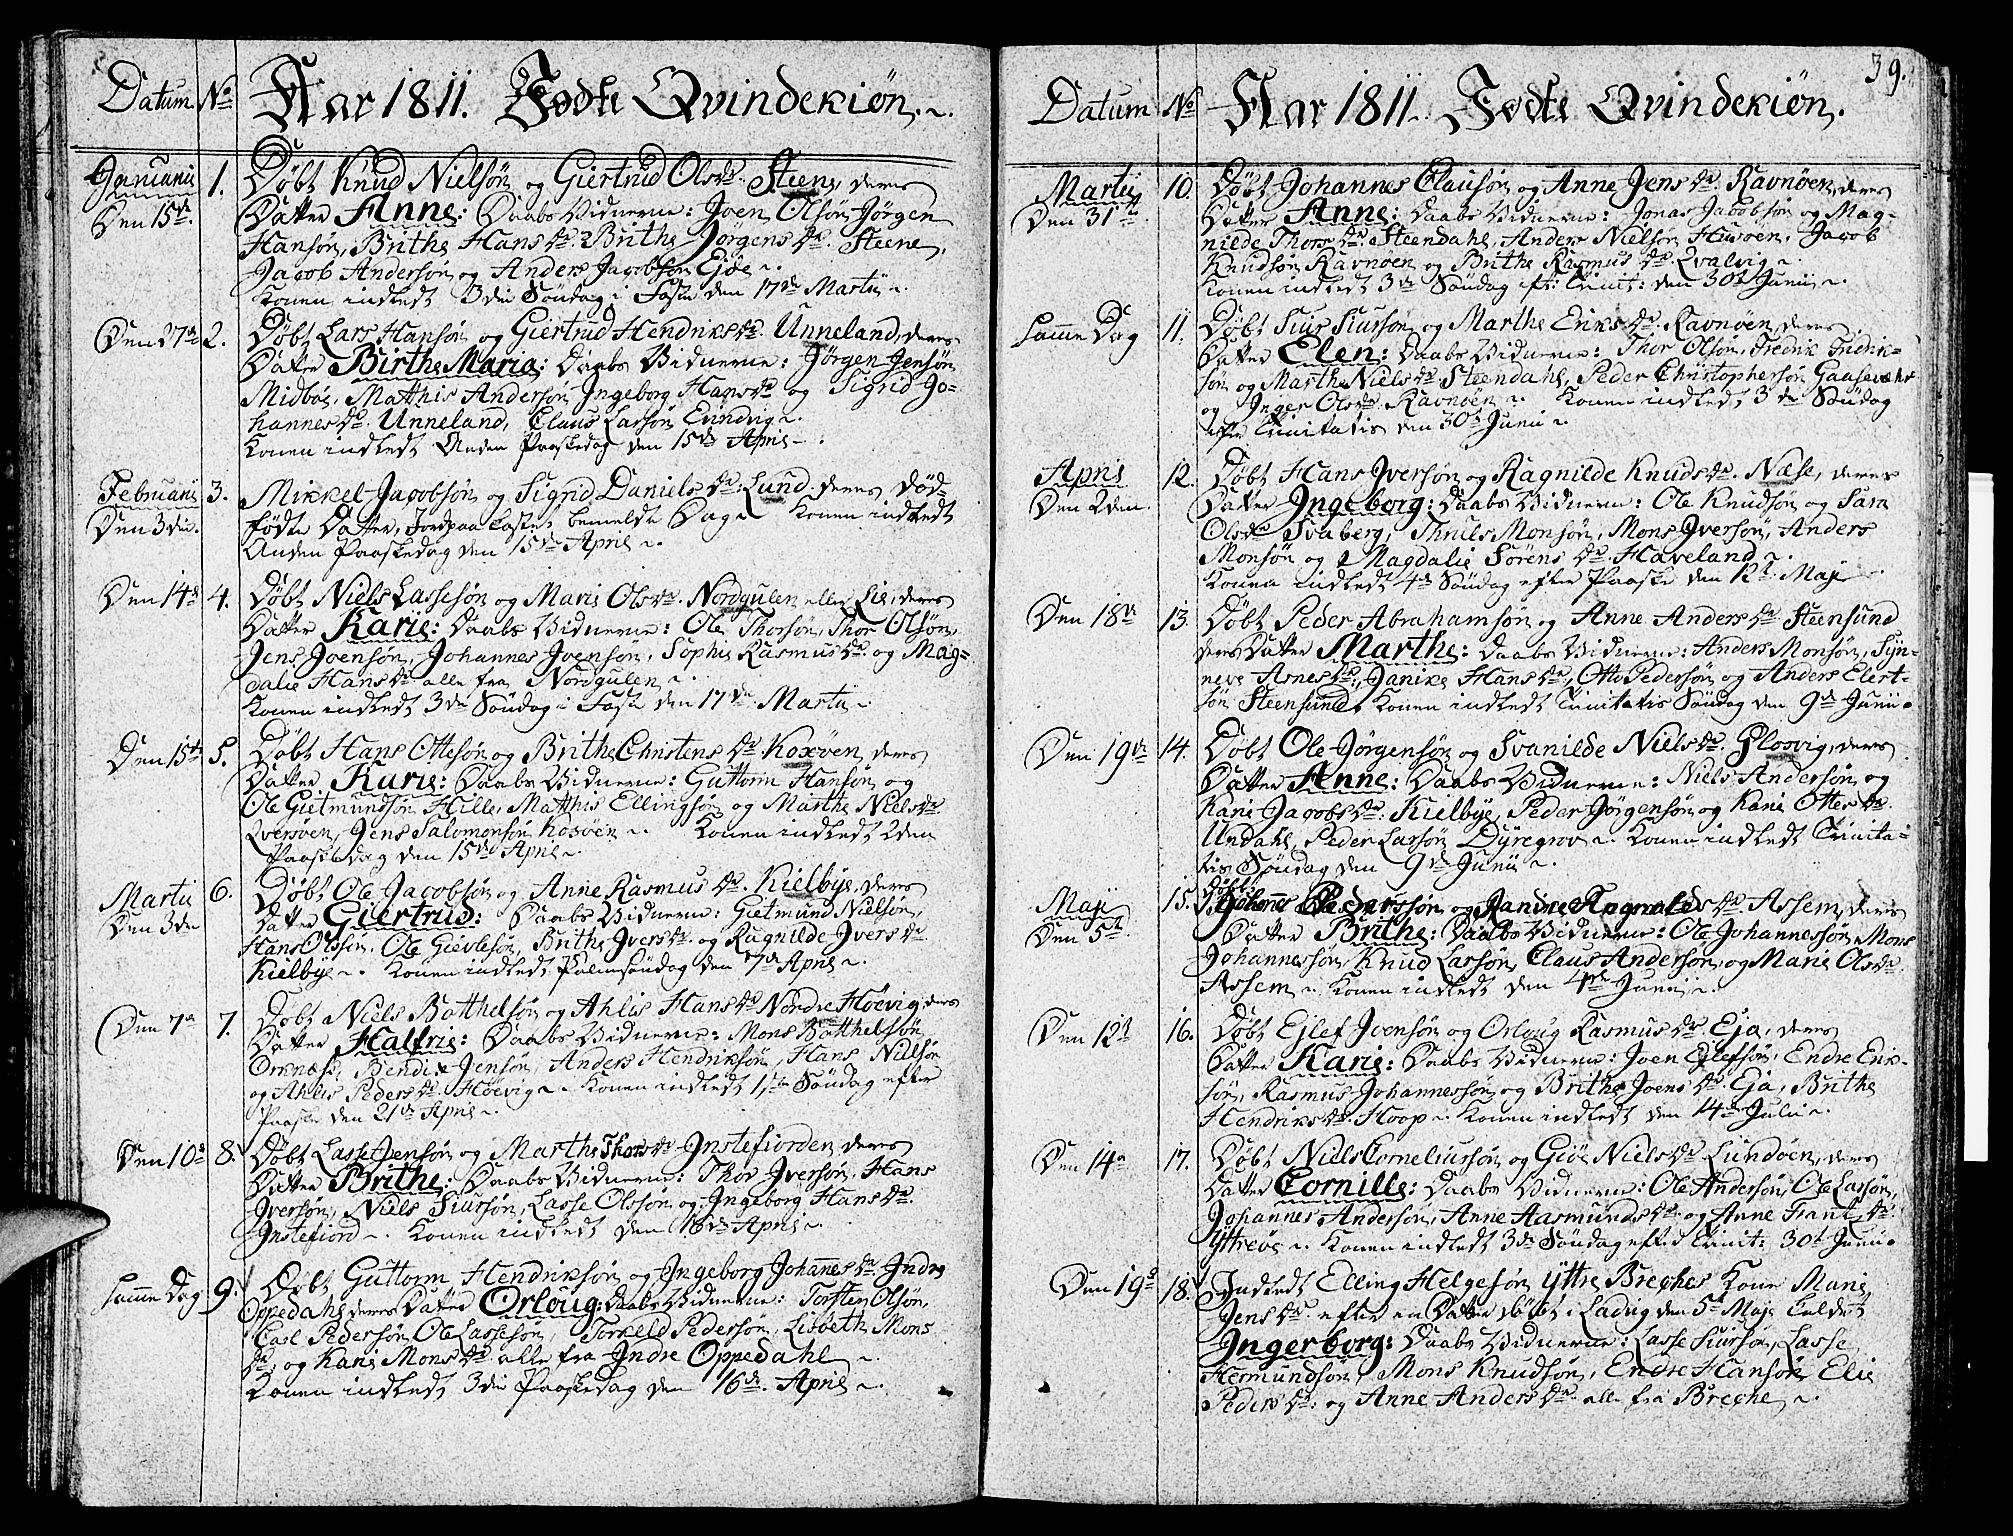 Datum No Aar 1811. Fødte Qvindekiøn.
Januarii 1. Døbt Knud Nielsøn og Giertrud Olsdr. Steene, deres
Den 15de. Datter Anne: Daabs Vidnerne: Joen Olsøn, Jørgen
Hansøn, Brithe Hansdr. Brithe Jørgensdr. Steene,
Jacob Andersøn og Anders Jacobsøn Ejde.
Konen indledt 3die Søndag i Faste den 17de Martii.
Den 27de 2. Døbt Lars Hansøn og Giertrud Hendriksdr. Unneland, deres
Datter Birthe Maria: Daabs Vidnerne: Jørgen Jensøn
Midbøe, Matthis Andersøn, Ingeborg Hansdr og Sigrid Jo-
hannesdr. Unneland, Claus Larsøn Evindvig.
Konen indledt Anden Paaskedag den 15de April.
Februarii 3. Mikkel Jacobsøn og Sigrid Danielsdr. Lund, deres død-
Den 3die. fødte Datter, Jordpaakastet bemeldte Dag. Konen indledt
Anden Paaskedag den 15de April.
Den 14de 4. Døbt Niels Lassesøn og Marie Olsdr. Nordgulen eller Lie, deres
Datter Karie: Daabs Vidnerne: Ole Thorsøn, Thor Olsøn,
Jens Joensøn, Johannes Joensøn, Sophie Rasmusdr. og Mag-
dalie Hansdr alle fra Nordgulen.
Konen indledt 3die Søndag i Faste den 17de Martii.
Den 15de 5. Døbt Hans Ottesøn og Brithe Christensdr. Koxøen, deres
Datter Karie: Daabs Vidnerne: Guttorm Hansøn og
Ole Gietmundsøn Hille, Matthis Ellingsøn og Marthe Nielsdr.
Qversøen, Jens Salomonsøn Koxøen. Konen indledt 2den
Paaskedag den 15de April.
Martii 6. Døbt Ole Jacobsøn og Anne Rasmusdr. Kielbye, deres
Den 3die Datter Giertrud: Daabs Vidnerne: Gietmund Nielsøn,
Hans Olssøn, Ole Gievlesøn, Brithe Iversdr. og Ragnilde Iversdr.
Kielbye. Konen indledt Palmesøndag den 7de April.
Den 7de 7. Døbt Niels Botthelsøn og Ahlis Hansdr Nordre Høevig, deres
Datter Halfrie: Daabs Vidnerne: Mons Botthelsøn
Ornnæs, Bendix Jensøn, Anders Hendriksøn, Hans Nielsøn
og Ahlis Pedersdr. Høevig. Konen indledt 1ste Søndag efter
Paaske den 21de April.
Den 10de 8. Døbt Lasse Jensøn og Marthe Thorsdr Instefiorden, deres
Datter Brithe: Daabs Vidnerne: Thor Iversøn, Hans
Iversøn, Niels Siursøn, Lasse Olssøn og Ingeborg Hansdr.
Instefiord. Konen indledt den 16de April.
Samme Dag 9. Døbt Guttorm Hendriksøn og Ingeborg Johannesdr Indre
Oppedahl deres Datter Orloug: Daabs Vidnerne: Torsten Olsøn,
Carl Pedersøn, Ole Lassesøn, Torkeld Pedersøn, Lisbeth Mons
dr. og Karie Monsdr. alle fra Indre Oppedahl.
Konen indledt 3die Paaskedag den 16de April.
39.
Datum No Aar 1811. Fødte Qvindekiøn.
Martii 10. Døbt Johannes Clausøn og Anne Jensdr. Ravnøen, deres
Den 31te Datter Anne: Daabs Vidnerne: Jonas Jacobsøn og Mag-
nilde Thorsdr. Steendahl, Anders Nielsøn Husøen, Jacob
Knudsøn Ravnøen og Brithe Rasmusdr. Qvalvig.
Konen indledt 3de Søndag eft: Trinit: den 30te Junii.
Samme Dag 11. Døbt Siur Siursøn og Marthe Eriksdr. Ravnøen, deres
Datter Elen: Daabs Vidnerne: Thor Olsøn, Fredrik Fredrik-
søn og Marthe Nielsdr. Steendahl, Peder Christophersøn Gaasevær
og Inger Olsdr. Ravnøen. Konen indledt 3de Søndag
efter Trinitatis den 30te Junii.
April 12. Døbt Hans Iversøn og Ragnilde Knudsdr. Næse, deres
Den 2den. Datter Ingeborg: Daabs Vidnerne: Ole Knudsøn og Sara
Olsdr Svaberg, Thrils Monsøn, Mons Iversøn, Anders
Monsøn og Magdalie Sørensdr. Haveland.
Konen indledt 4de Søndag efter Paaske den 12te Maji
Den 18de 13. Døbt Peder Abrahamsøn og Anne Andersdr Steensund
deres Datter Marthe: Daabs Vidnerne: Anders Monsøn, Syn-
neve Asnesdr., Danike Hansdr., Otto Pedersøn og Anders Elert-
søn Steensund. Konen indledt Trinitatis Søndag den 9de Junii.
Den 19de 14. Døbt Ole Jørgensøn og Svanilde Nielsdr. Plosvig, deres
Datter Anne: Daabs Vidnerne: Niels Andersøn og
Karie Jacobsdr. Kielbye, Peder Jørgensøn og Karie Ottesdr.
Undahl, Peder Larsøn Dyregrov. Konen indledt Trinita-
tis Søndag den 9de Junii.
Maji 15. Døbt Johannes Pederssøn og Randne Ragnaldsdr. Assem, deres
Den 5te. Datter Brithe: Daabs Vidnerne: Ole Johannessøn, Mons
Johannessøn, Knud Larsøn, Claus Andersøn og Marie Olsdr.
Assem. Konen indledt den 4de Junii.
Den 12te 16. Døbt Ejlef Joensøn og Orloug Rasmusdr Eja, deres
Datter Karie: Daabs Vidnerne: Joen Ejlefsøn, Endre Erik-
søn, Rasmus Johannessøn og Brithe Joensdr. Eja, Brithe
Hendriksdr. Hoop. Konen indledt den 14de Julii.
Den 14de 17. Døbt Niels Corneliussøn og Giøe Nielsdr Lundøen, deres
Datter Cornille: Daabs Vidnerne: Ole Andersøn, Ole Larsøn,
Johannes Andersøn, Anne Aasmundsdr. og Anne Frantsdr.
Yttreøe. Konen indledt 3de Søndag efter Trinit: 30te Junii.
Den 19de 18. Indledt Elling Helgesøn Yttre Breches Kone Marie
Jensdr. efter en Datter døbt i Ladvig den 5te Maji kaldet
Ingerborg: Daabs Vidnerne: Lasse Siursøn, Lasse
Hermundsøn, Mons Knudsøn, Endre Hansøn, Elie
Pedersdr: og Anne Andersdr. alle fra Breche.